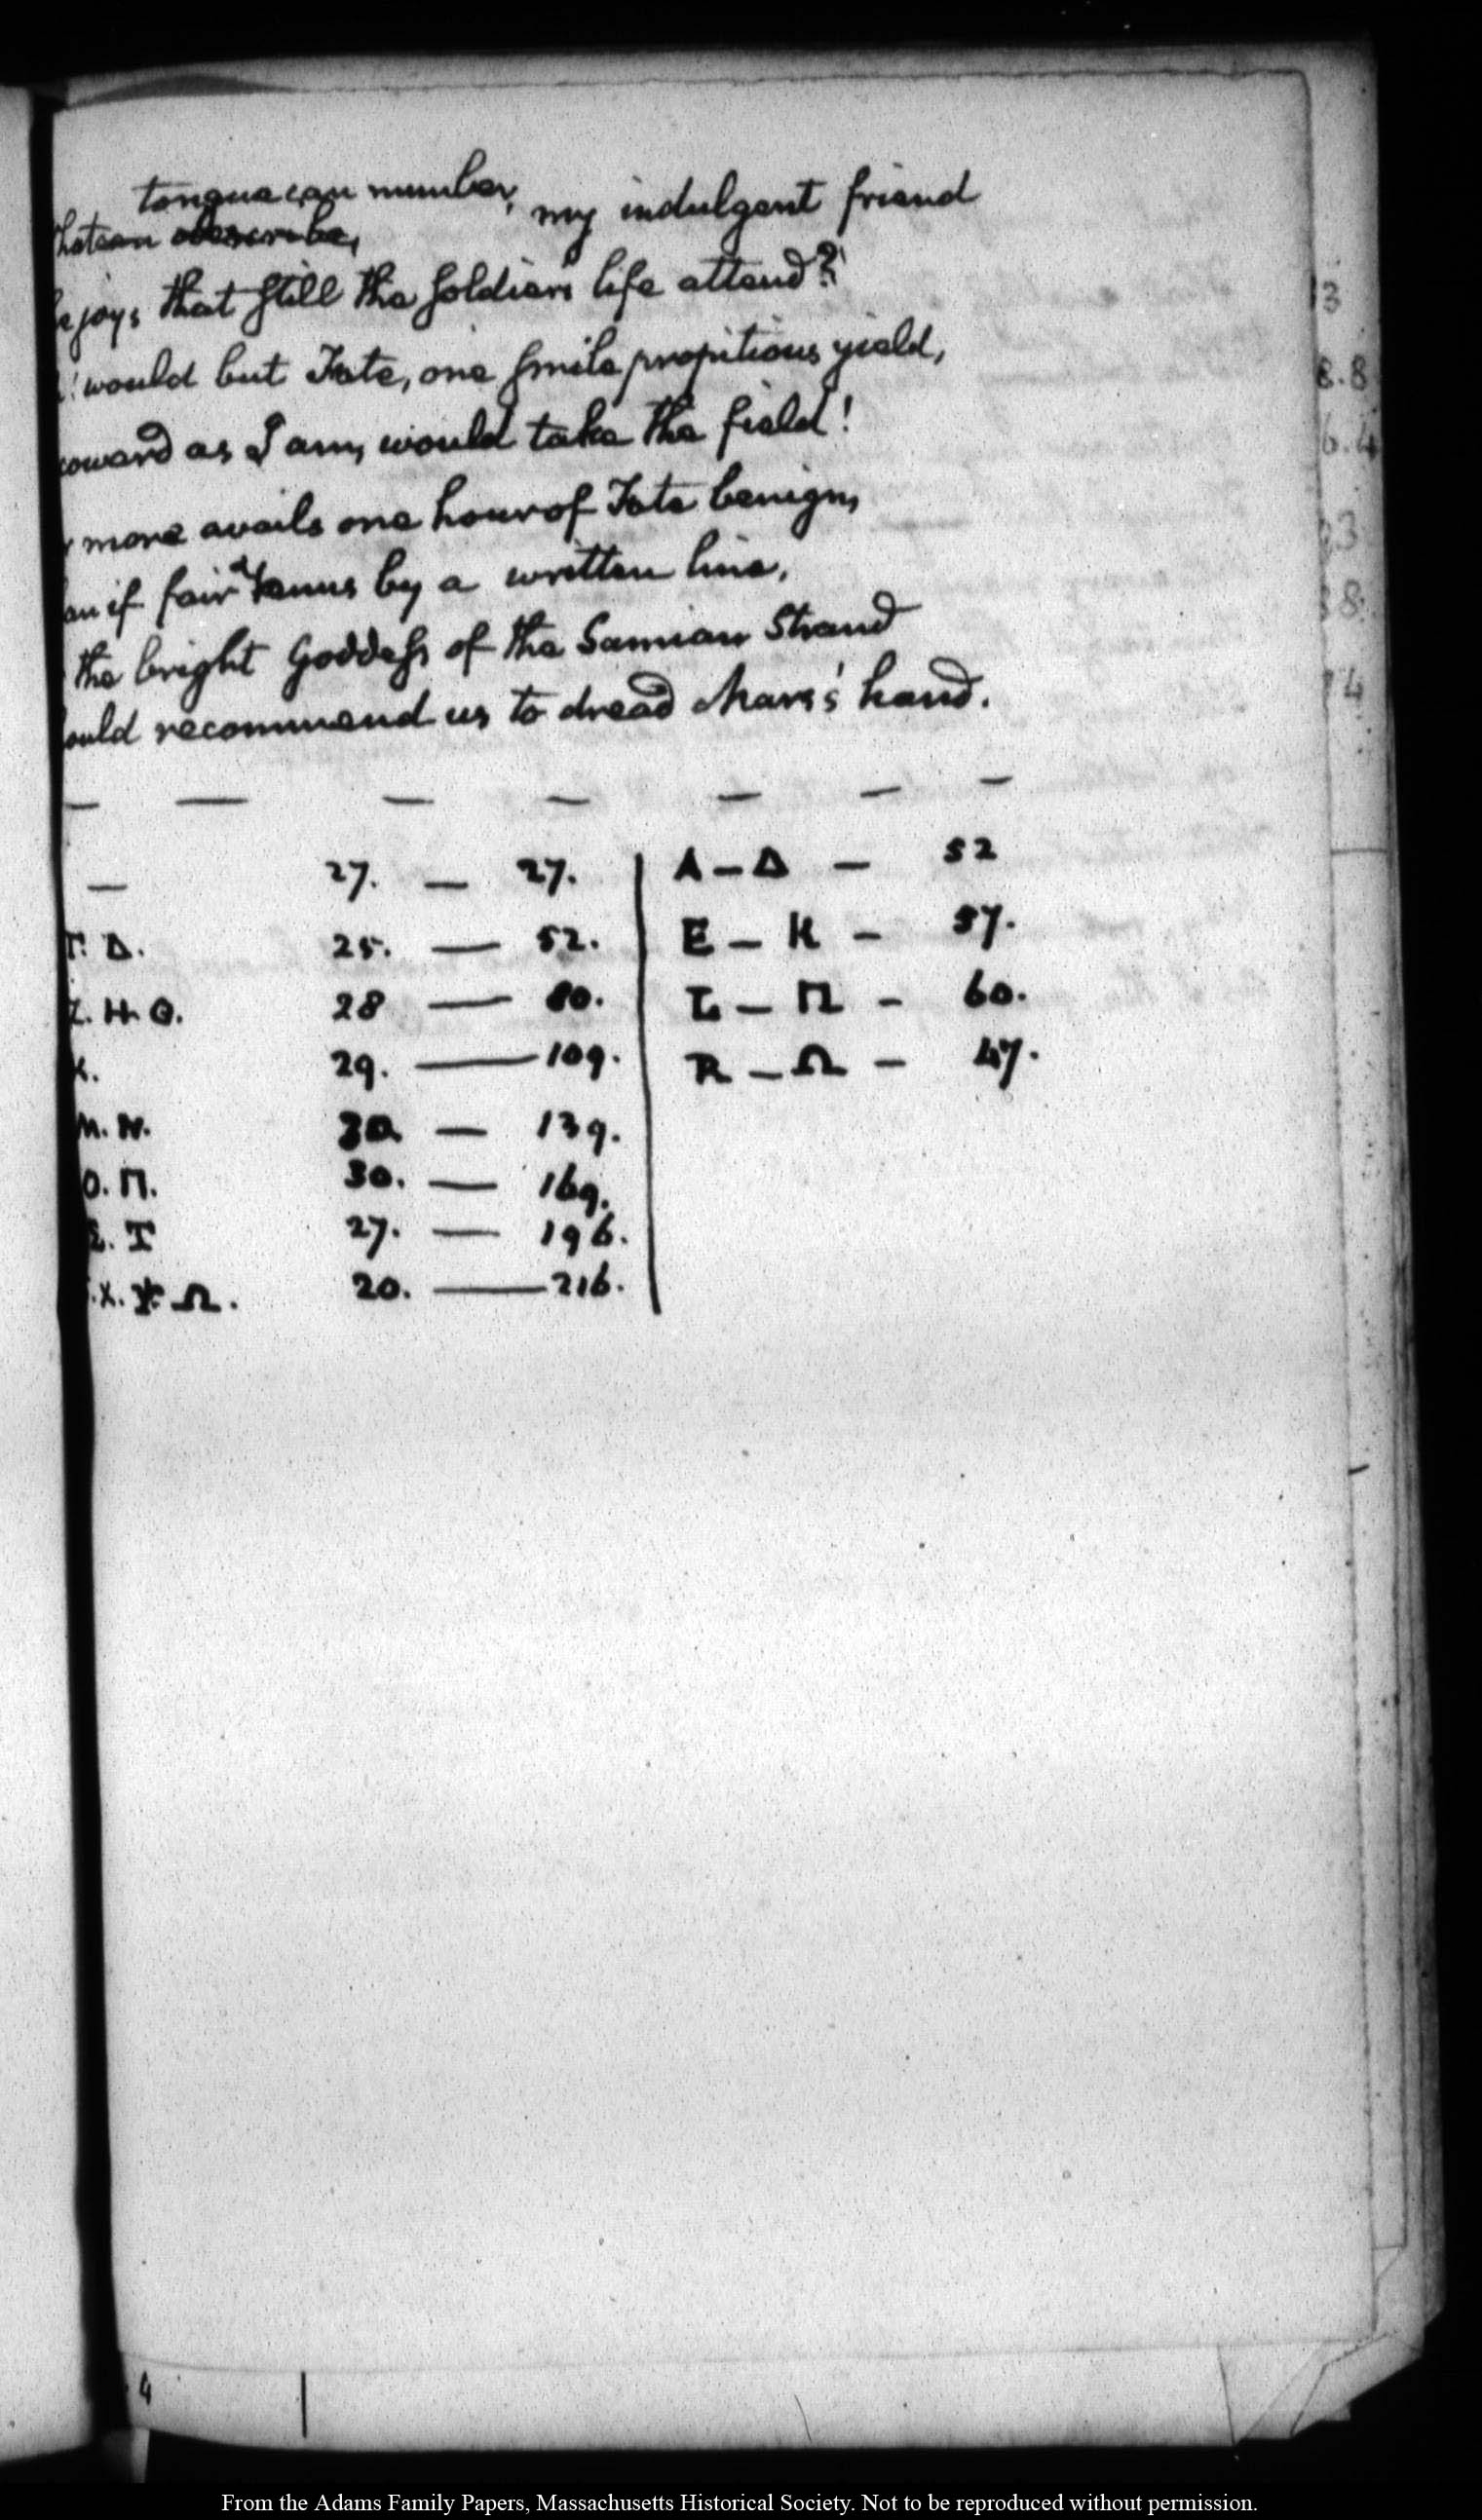 tongue can number, my indulgent friend
describe,
joys that still the Soldier's life attend?
would but Fate, one smile propitious yield,
coward as I am, would take the field!
more avails one hour of Fate benign,
if fair Venus by a written line,
the bright Goddess of the Samian Strand
ould recommend us to dread Mars's hand.
— — — — — — —
— 27. — 27. | A — Δ — 52
Γ. Δ. 25. — 52. | E — K — 57.
Z. H. Θ. 28 — 80. | L — Π — 60.
K. 29. — 109. | R — Ω — 47.
M. N. 30. — 139.
O. Π. 30. — 169.
Σ. T 27. — 196.
X. Ψ. Ω. 20. — 216.
3
8.8
6.4
3
8
4
4
From the Adams Family Papers, Massachusetts Historical Society. Not to be reproduced without permission.